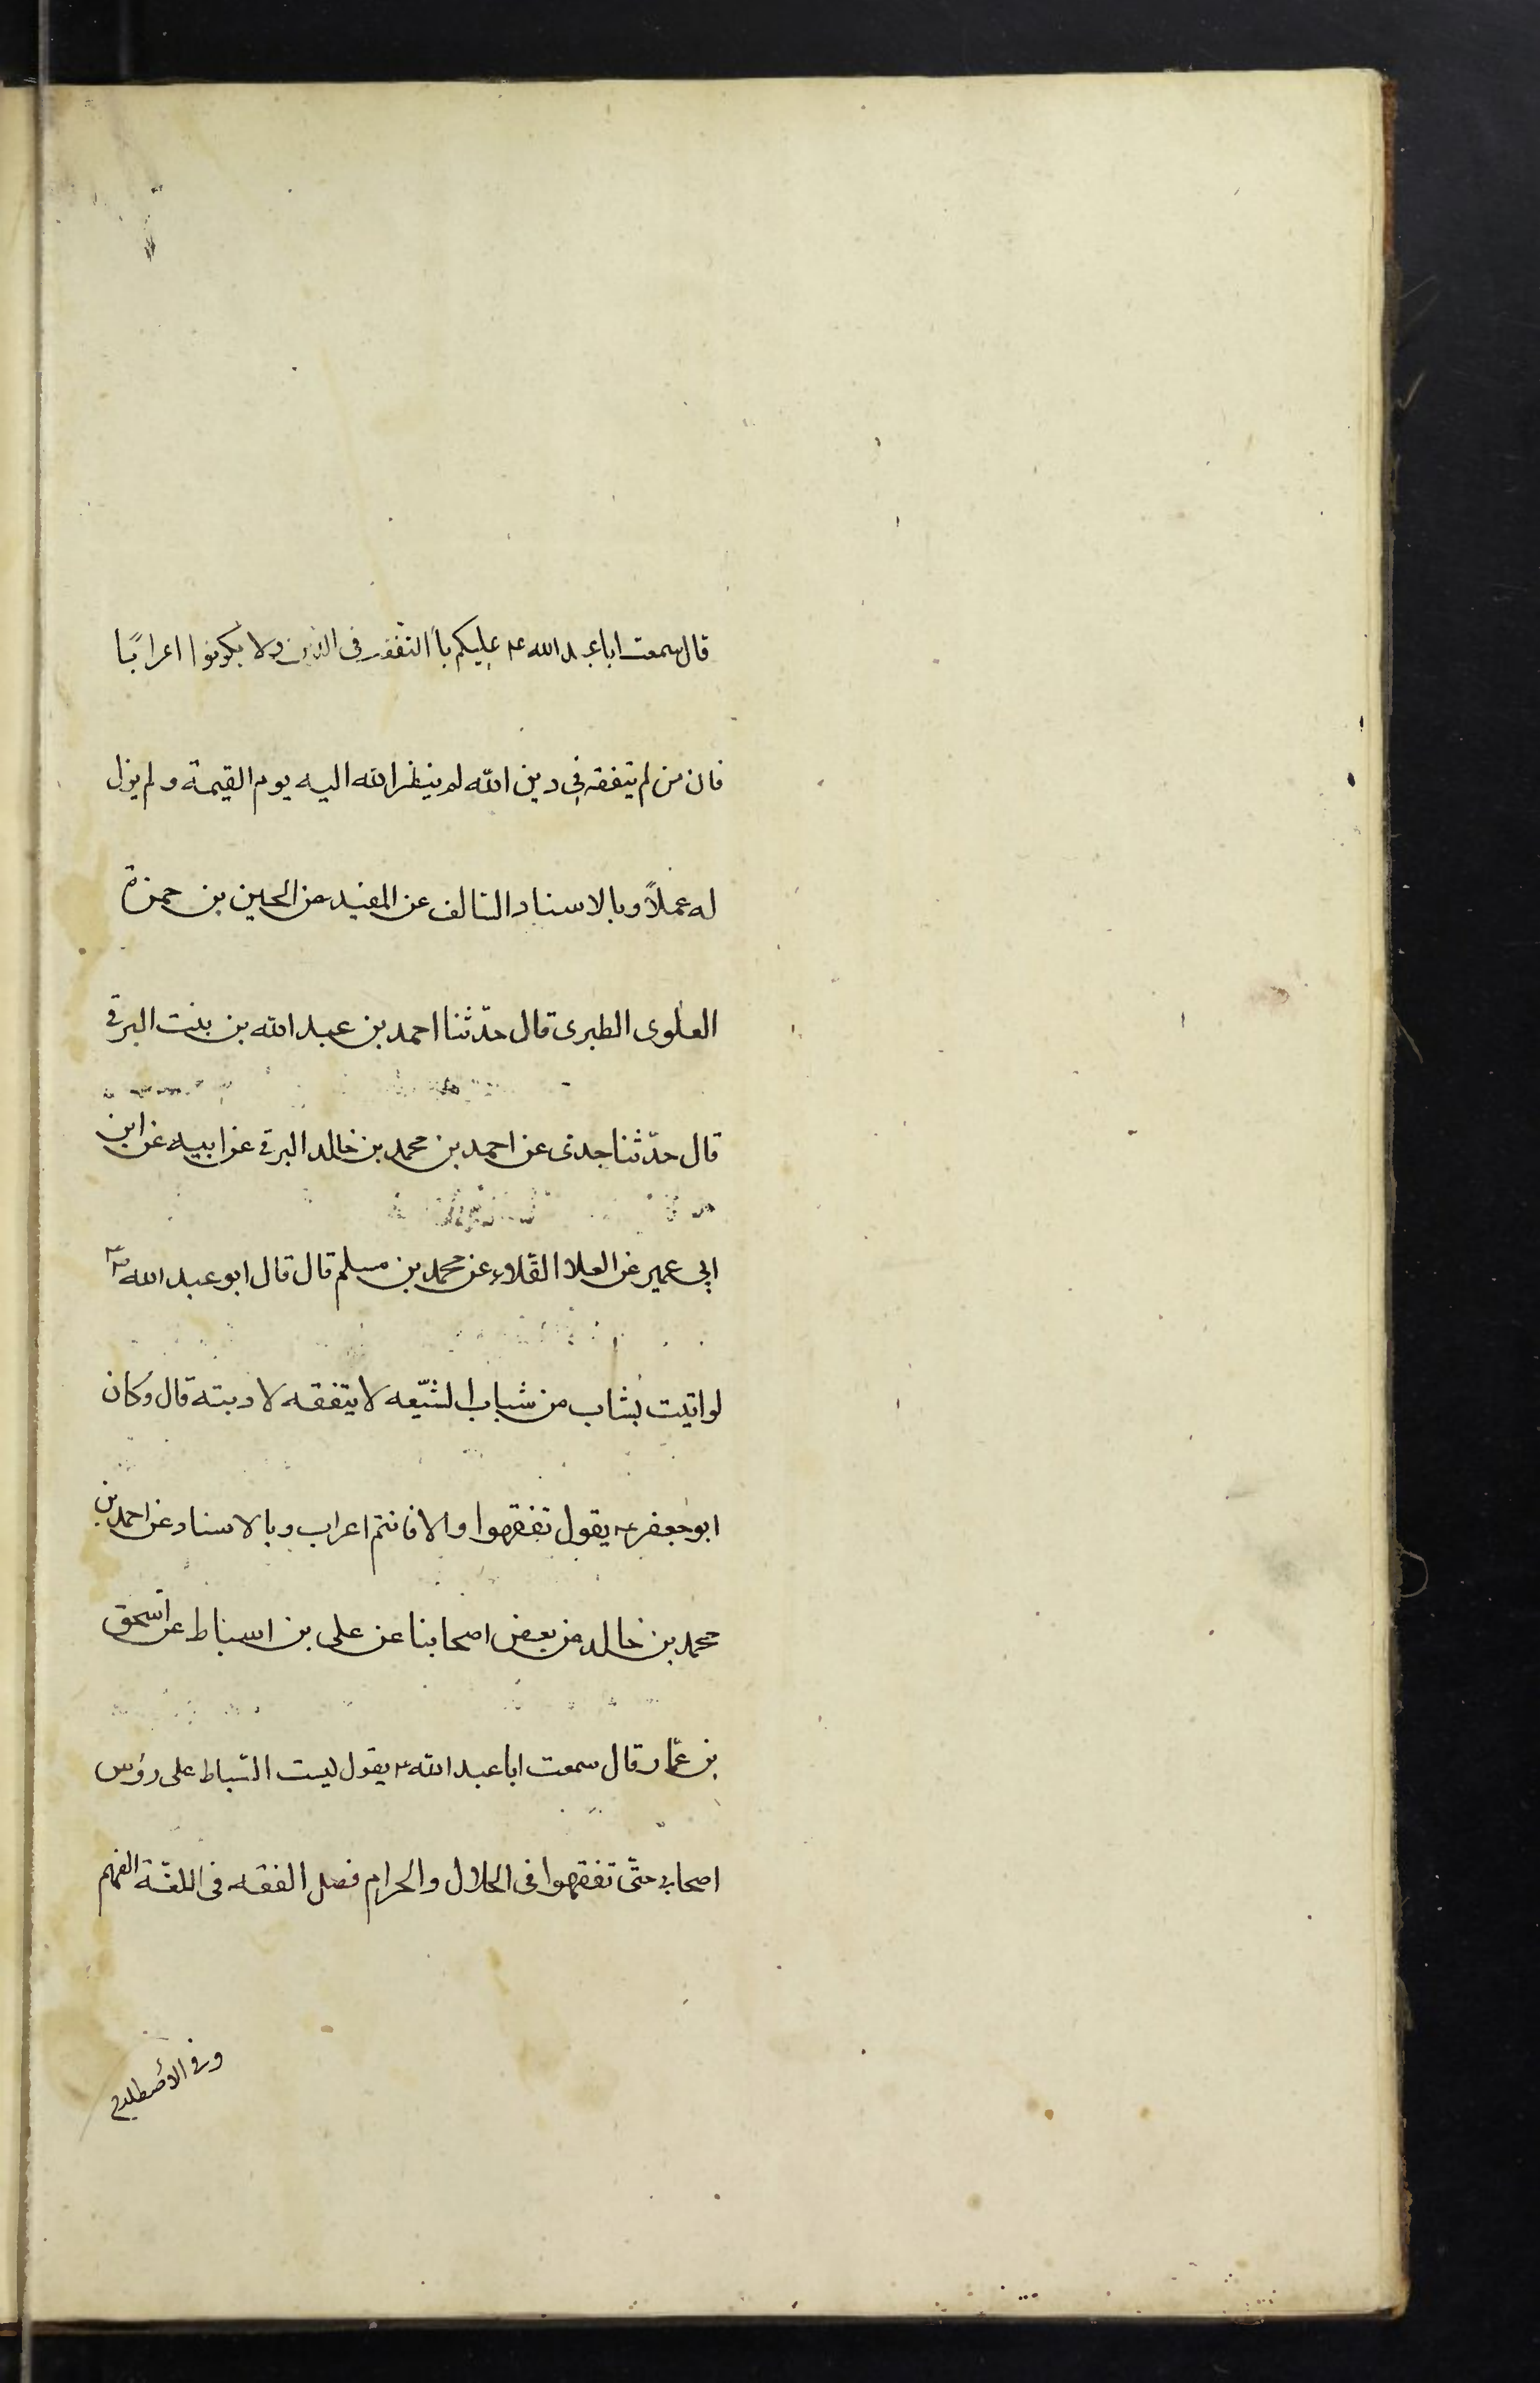 قال سمعت ابا عبد الله ع عليكم بالتفقه فى الدين ولا تكونوا اعرابًا
فان من لم يتفقه فى دين الله لم ينظر الله اليه يوم القيمة و لم يزل
له عملاً وبالاسناد السالف عن المفيد عن الحسين بن حمزة
العلوى الطبرى قال حدّثنا احمد بن عبد الله بن بنت البرقى
قال حدّثنا جدى عن احمد بن محمد بن خالد البرقى عن ابيه عن ابن
ابى عمير عن العلا القلاء عن محمد بن مسلم قال قال ابو عبد الله ع
لو اتيت بشاب من شباب الشيّعه لا يتفقه لادبته قال وكان
ابو جعفر ع يقول تفقهوا والا فانتم اعراب وبالاسناد عن احمد بن
محمد بن خالد عن بعض اصحابنا عن على بن اسباط عن اسحق
بن عمّار قال سمعت ابا عبد الله ع يقول ليست السّياط على رؤس
اصحابى حتّى تفقهوا فى الحلال والحرام فصل الفقه فى اللغّة الفهم
وفى الاصطلاح